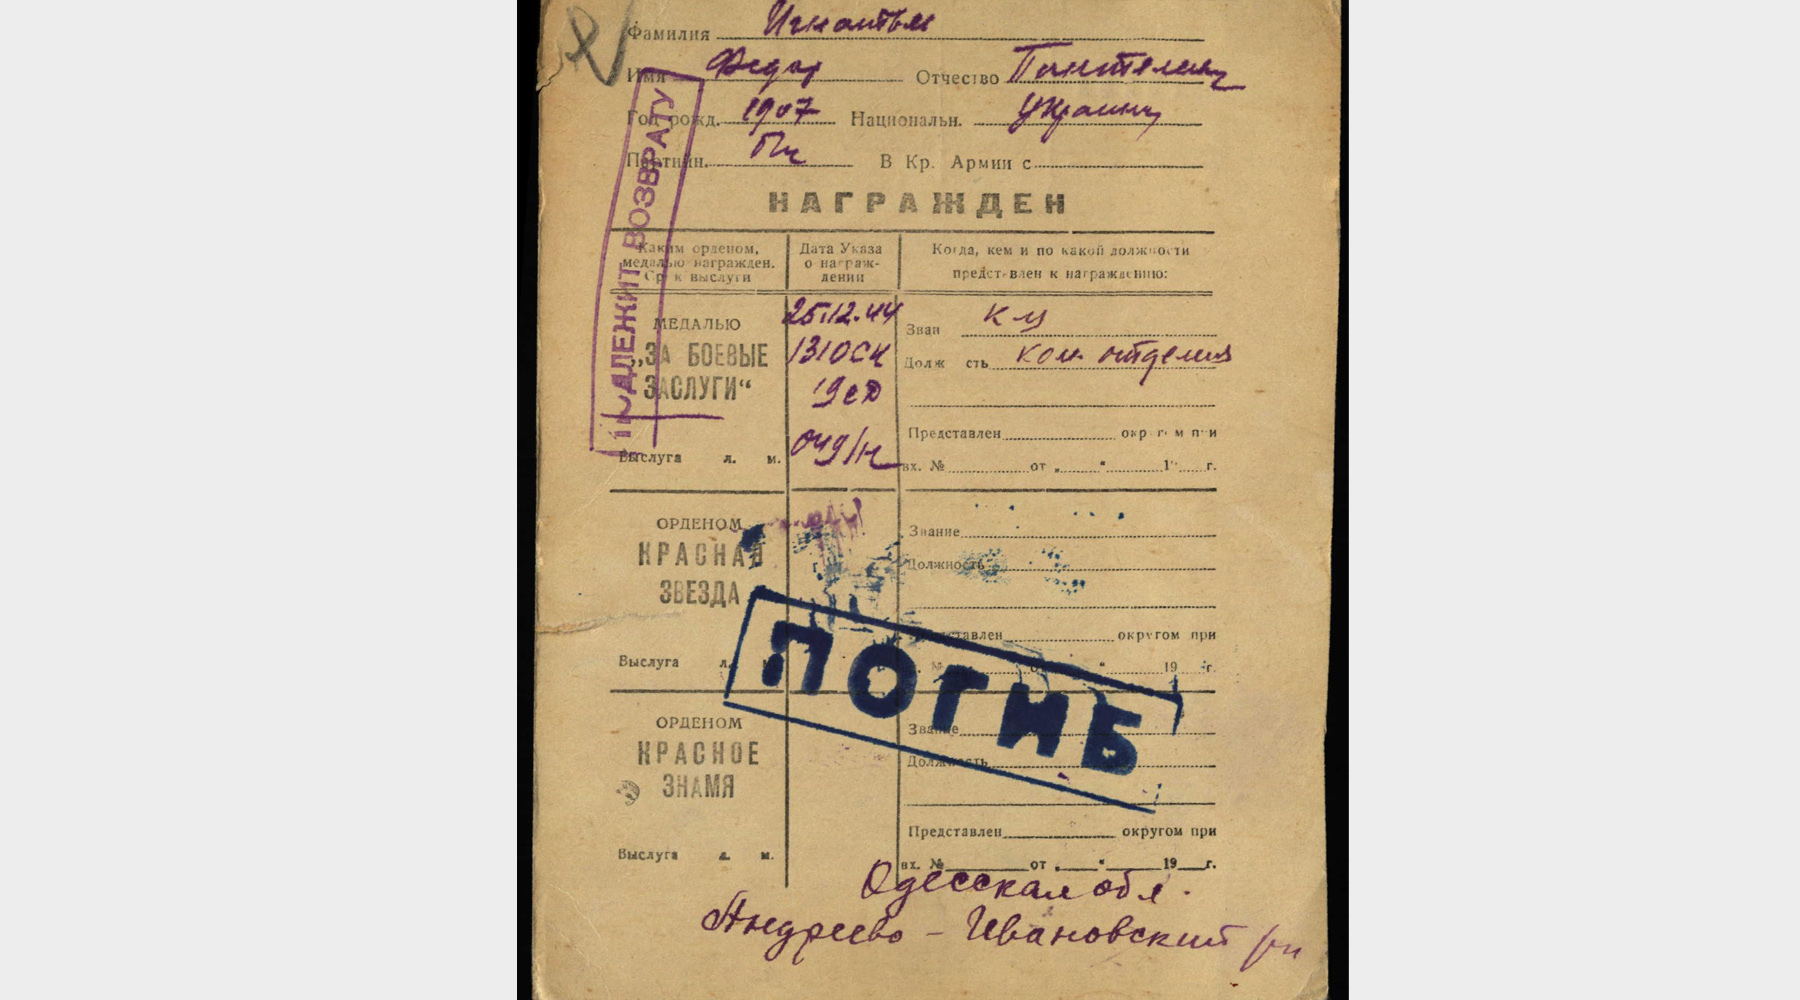 Фамилия Игнатьев
Имя Федор Отчество Пантелеев
Год рожд. 1907 Национальн. Украинец
Партийн. В Кр. Армии с
НАГРАЖДЕН
Каким орденом, медалью награжден. Срок выслуги
Дата Указа о награждении
Когда, кем и по какой должности представлен к награждению:
МЕДАЛЬЮ
„ЗА БОЕВЫЕ
ЗАСЛУГИ“
Выслуга л. м.
25.12.44
131 ОСК
19 СД
049/н
Зван
Долж сть ком отделения
Представлен округом при
вх. № от „ “ 1 г.
ОРДЕНОМ
КРАСНАЯ
ЗВЕЗДА
Выслуга л. м.
Звание
Должность
Представлен округом при
№ от “ 19 г.
ОРДЕНОМ
КРАСНОЕ
ЗНАМЯ
Выслуга л. м.
Звание
Должность
Представлен округом при
вх. № от „ “ 19 г.
ПОДЛЕЖИТ ВОЗВРАТУ
ПОГИБ
Одесская обл.
Андреево - Ивановский р-н